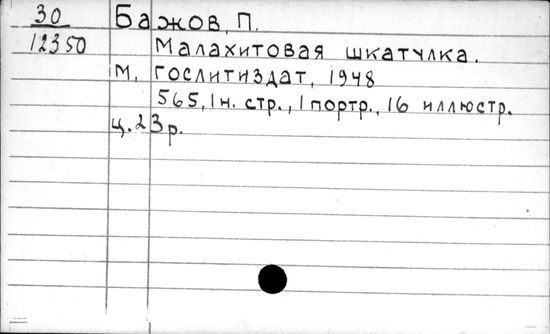 30 Бажов, П.
12350 Малахитовая шкатулка.
М, Гослитиздат, 1948
565, 1н. стр., 1 портр., 16 иллюстр.
ц. 23р.